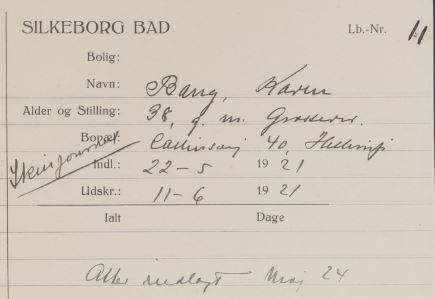 SILKEBORG BAD Lb.-Nr. 11
Bolig:
Navn: Bang, Karen
Alder og Stilling: 38, g. m. Grosserer.
Bopæl: 40, Hellerup
Indl.: 22-5 1921
Udskr.: 11-6 1921
Ialt Dage
Atter indlagt Maj 24